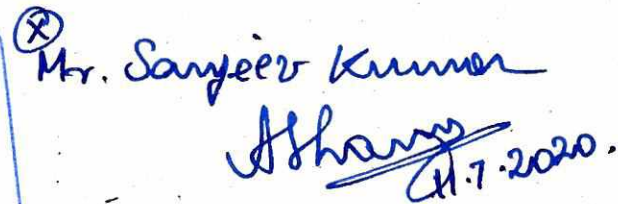 X
Mr. Sanjeev Kumar
11.7.2020.